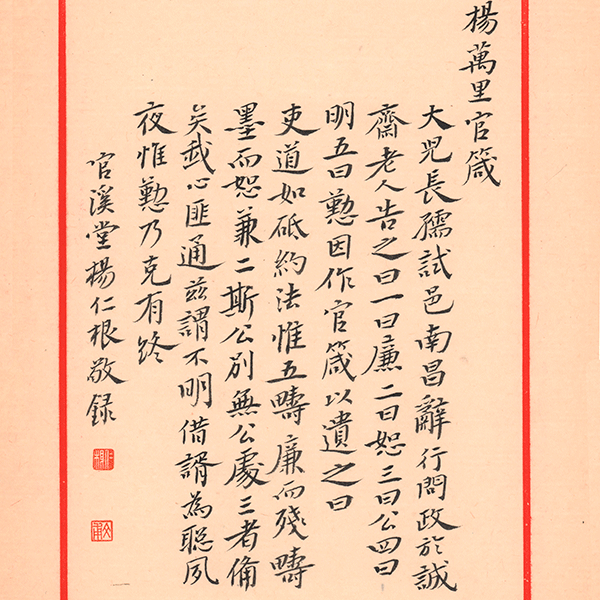 楊萬里官箴
大兒長孺試邑南昌辭行問政於誠
齋老人告之曰一曰廉二曰恕三曰公四曰
明五曰懃因作官箴以遺之曰
吏道如砥約法惟五疇廉而殘疇
墨而恕兼二斯公別無公處三者備
矣我心匪通茲謂不明借諝為聰夙
夜惟懃乃克有終
官溪堂楊仁根敬録